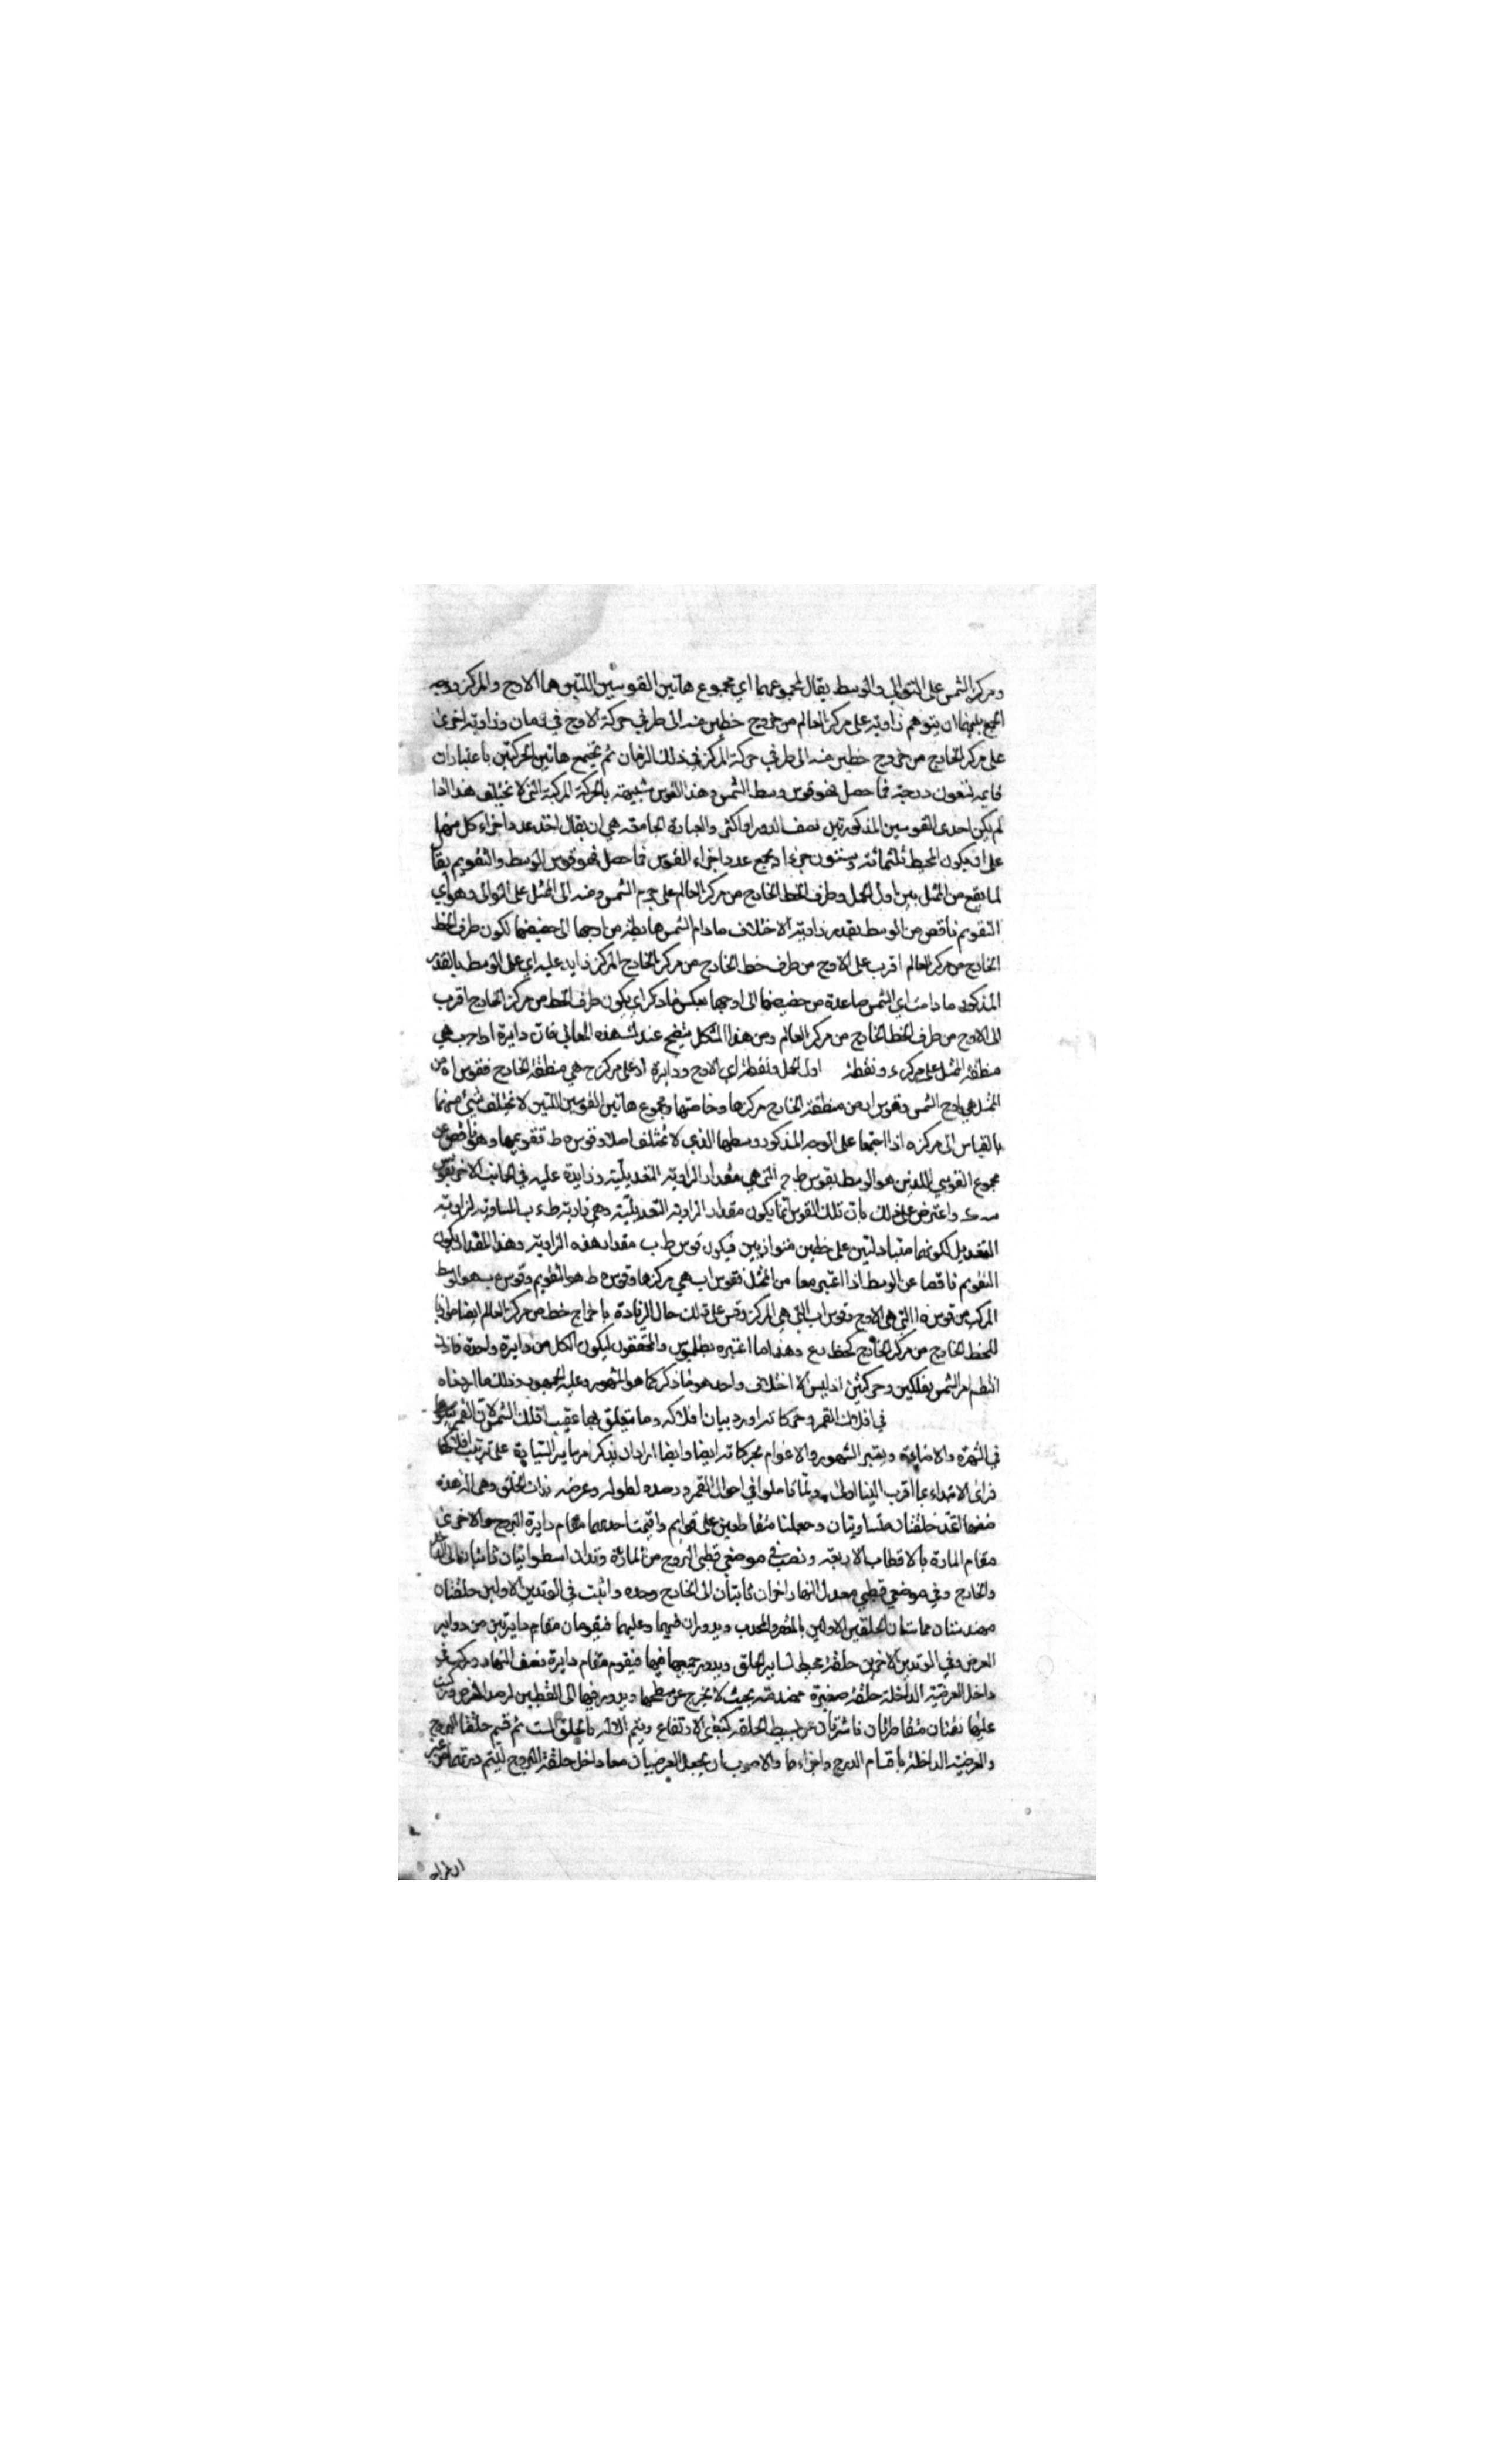 ومركز الشمس على التوالي والوسط يقال لمجموعهما اي مجموع هاتين القوسين اللتين هما الاوج والمركز ووجه
الجمع بينهما ان يتوهم زاوية على مركز العالم من خروج خطين منه الى طرفي حركة الاوج في زمان وزاوية اخرى
على مركز الخارج من خروج خطين منه الى طرفي حركة المركز في ذلك الزمان ثم تجتمع هاتين الحركتين باعتبار ان
قايمة تسعون درجة فما حصل فهو قوس وسط الشمس وهذا القوس شبيهة بالحركة المركبة التي لا تختلف هذا اذا
لم يكن احدى القوسين المذكورتين نصف الدور او اكثر والعبارة الجامعة هي ان يقال اخذ عدد اجزاء كل منهما
على ان يكون المحيط ثلثمائة وستون جزءا ويجمع عدد اجزاء القوس فما حصل فهو قوس الوسط والتقويم يقال
لما يقع من الممثل بين اول الحمل وطرف الخط الخارج من مركز العالم على جرم الشمس ومنه الى الممثل على التوالي وهو اي
التقويم ناقص من الوسط بقدر زاوية الاختلاف ما دام الشمس هابطة من اوجها الى حضيضها لكون طرف الخط
الخارج من مركز العالم اقرب على الاوج من طرف خط الخارج من مركز الخارج المركز زايد عليه اي على الوسط بالقدر
المذكور ما دامت اي الشمس صاعدة من حضيضها الى اوجها بعكس ما ذكر اي يكون طرف الخط من مركز الخارج اقرب
الى الاوج من طرف الخط الخارج من مركز العالم ومن هذا الشكل يتضح عندك هذه المعاني فان دايرة هي
منطقة الممثل على مركز ء ونقطة اول الحمل ونقطة اي الاوج ودايرة على مركز ح هي منطقة الخارج فقوس من
الممثل هي اوج الشمس وقوس من منطقة الخارج مركزها وخاصتها ومجموع هاتين القوسين اللتين لا تختلف شيئ منهما
بالقياس الى مركزه اذا اجتمعا على الوجه المذكور وسطها الذي لا يختلف اصلا وقوس ه ط تقويمها وهو ناقص عن
مجموع القوسي اللذين هو الوسط بقوس التي هي مقدار الزاوية التعديلية وزايدة عليه في الجانب الاخر بقوس
واعترض على ذلك بان تلك القوس انما يكون مقدار الزاوية التعديلية وهي زاوية المساوية لزاوية
التعديل لكونهما متبادلتين على خطين متوازيين فيكون قوس ط ب مقدار هذه الزاوية وهذا المقدار يكون
التقويم ناقصا عن الوسط اذا اعتبر معا من الممثل فقوس اب هي مركزها وقوس ه ط هو التقويم وقوس ه ب هو الوسط
المركب من قوس ه ا التي هي الاوج وقوس اب التي هي المركز وقس على ذلك حال الزيادة باخراج خط من مركز العالم ايضا موازيا
للخط الخارج من مركز الخارج كخط وهذا ما اعتبره بطلميوس والمحققون ليكون الكل من دايرة واحدة فاذا
انتظم امر الشمس بفلكين وحركتين اذ ليس الا اختلاف واحد هو ما ذكر كما هو المشهور وعليه الجمهور وذلك ما اردناه
في افلاك القمر وحركاته اورد بيان افلاكه وما يتعلق بها عقيب افلاك الشمس لان القمر يتلوها
في الشهرة والاضاءة ويعتبر الشهور والاعوام بحركاته ايضا وايضا اراد ان يذكر امر ساير السيارة على ترتيب افلاكها
فراى الابتداء بما اقرب الينا اولى ولما تاملوا في احوال القمر ورصده لطوله وعرضه بذات الحلق وهي الة هذه
صفتها اتخذ حلقتان متساويتان وجعلتا متقاطعين على قوايم واقيمت احديهما مقام دايرة البروج والاخرى
مقام المارة بالاقطاب الاربعة ونصب في موضعي قطبي البروج من المارة وتدان اسطوانيان ناتئان الى الداخل
والخارج وفي موضعي قطبي معدل النهار اخران ناتيان الى الخارج وحده واثبت في الوتدين الاولين حلقتان
مهندستان مماستان الحلقتين الاوليين بالمقعر والمحدب ويدوران فيهما وعليهما فيقومان مقام دايرتين من دواير
العرض وفي الوتدين الاخرين حلقة محيط لساير الحلق ويدور جميعها فيها فيقوم مقام دايرة نصف النهار وركب في
داخل العرضية الداخلة حلقة صغيرة مهندمة بحيث لا يخرج عن سطحها ويدور فيها الى القطبين لرصد العرض وركبت
عليها ثقبتان متقاطرتان ناشزتان عن بسيط الحلقة كثقبتي الارتفاع ويتم الالة بالحلق الست ثم قسم حلقتا البروج
والعرضية الداخلة باقسام الدرج واجزاءها والاصوب ان يجعل العرضيتان معا داخل حلقة البروج ليتم دورتهما من غير